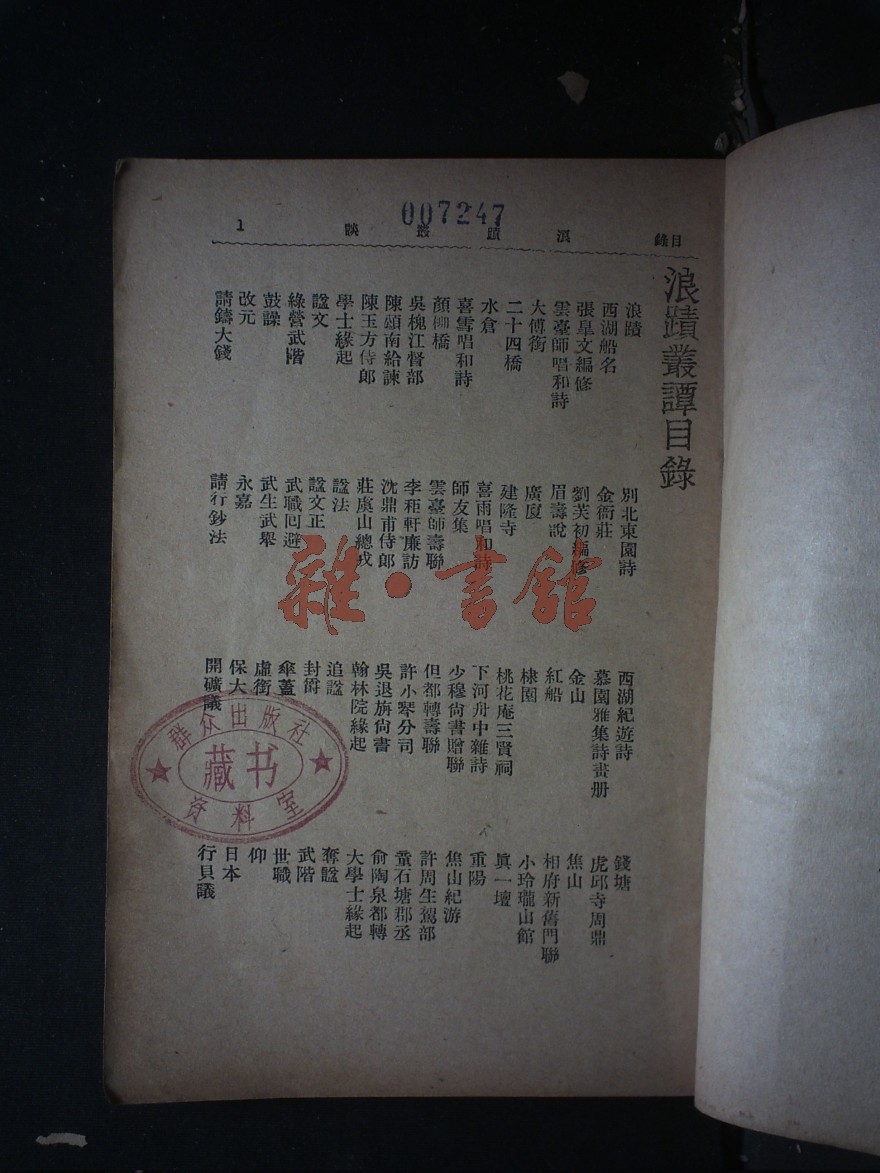 007247
目錄 浪蹟叢談 1
浪蹟叢譚目錄
浪蹟 別北東園詩 西湖紀遊詩 錢塘
西湖船名 金衙莊 慕園雅集詩畫册 虎邱寺周鼎
張皐文編修 劉芙初編修 金山 焦山
雲臺師唱和詩 眉壽說 紅船 相府新舊門聯
大傅銜 廣廈 棣園 小玲瓏山館
二十四橋 建隆寺 桃花庵三賢祠 眞一壇
水倉 喜雨唱和詩 下河舟中雜詩 重陽
喜雪唱和詩 師友集 少穆尙書贈聯 焦山紀游
顏柳橋 雲臺師壽聯 但都轉壽聯 許周生駕部
吳槐江督部 李秬軒廉訪 許小琴分司 童石塘郡丞
陳頌南給諫 沈鼎甫侍郎 吳退旃尙書 俞陶泉都轉
陳玉方侍郎 莊虞山總戎 翰林院緣起 大學士緣起
學士緣起 諡法 追諡 奪諡
諡文 諡文正 封爵 武階
綠營武階 武職囘避 傘蓋 世職
鼓譟 武生武舉 虛銜 仰
改元 永嘉 保大 日本
請鑄大錢 請行鈔法 開礦議 行貝議
雜·書館
群众出版社
藏书
资料室